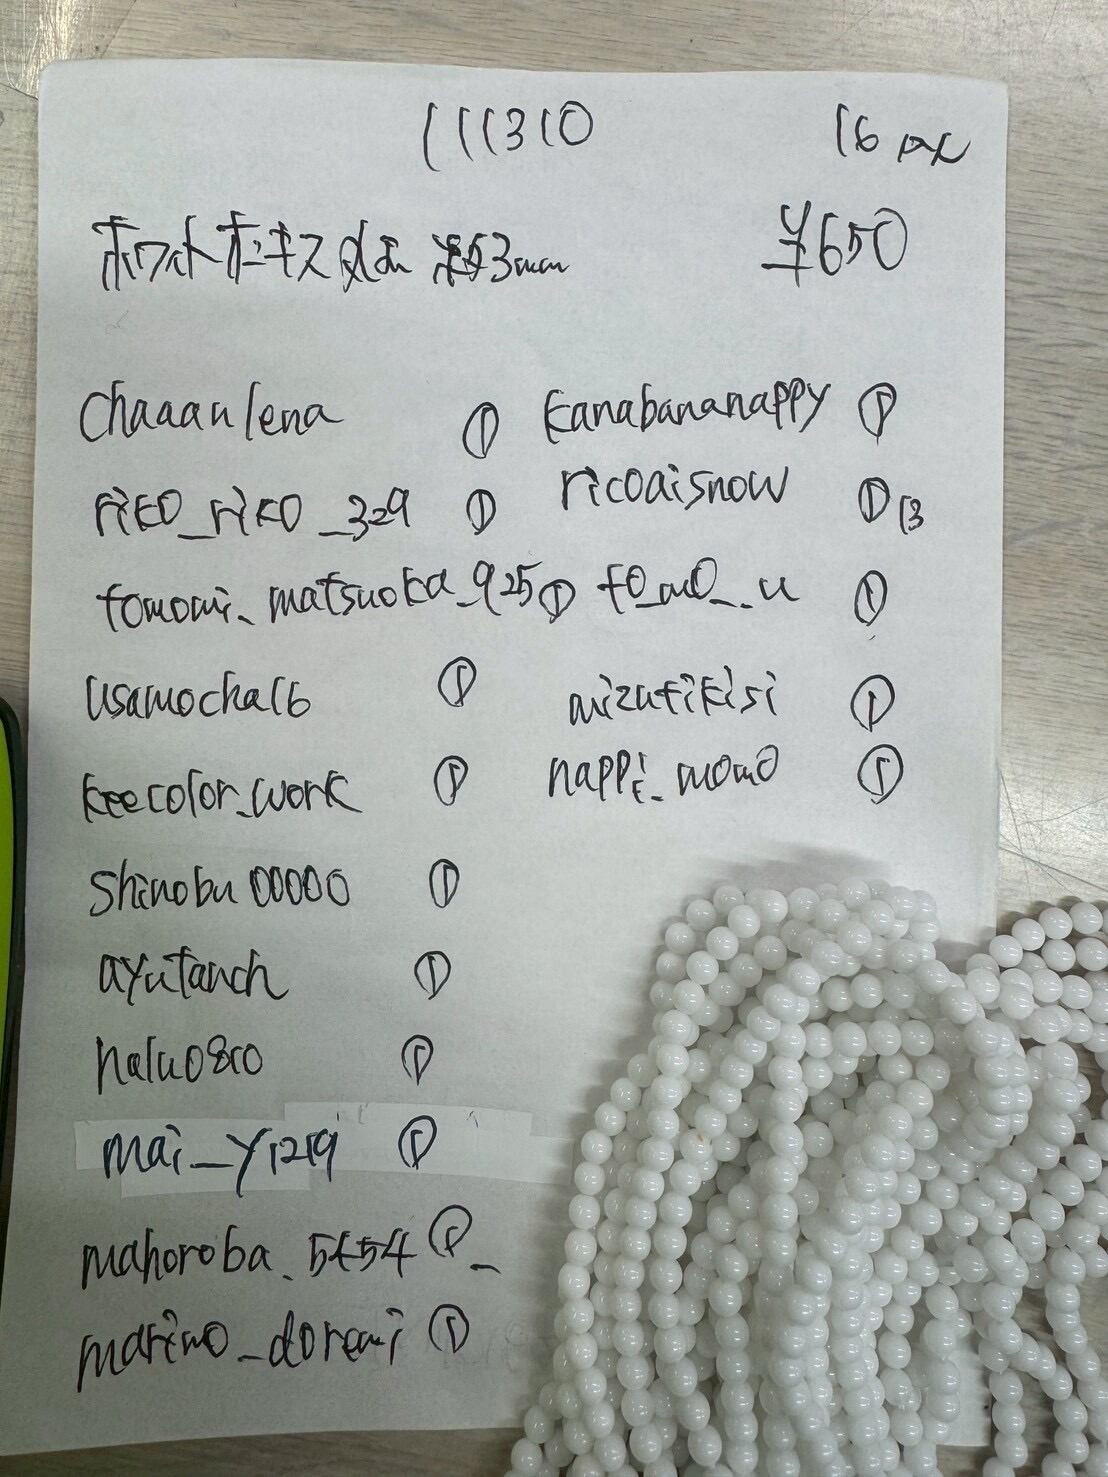 111310 16pcs
¥650
ホワイトオニキス 約3mm
chaaanlena ①
riko_riko_329 ①
tomomi_matsuoka_925 ①
usamocha16 ①
keecolor_work ①
shinobu00000 ①
ayutanch ①
halu0810 ①
mai_y1219 ①
mahoroba_5454 ①
marimo_doremi ①
kanabananappy ①
ricoaisnow ① 13
to_mo_._u ①
mizutikisi ①
nappi_momo ①